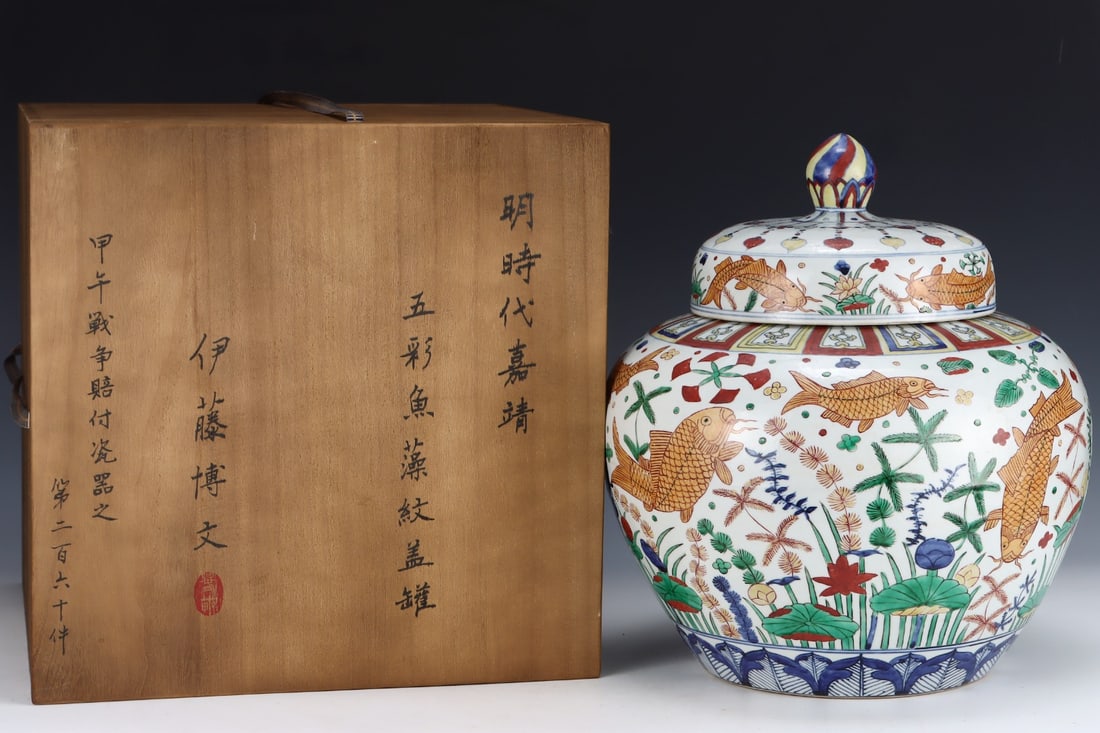 明時代嘉靖
五彩魚藻紋盖罐
伊藤博文
甲午戰争賠付瓷器之
第二百六十件